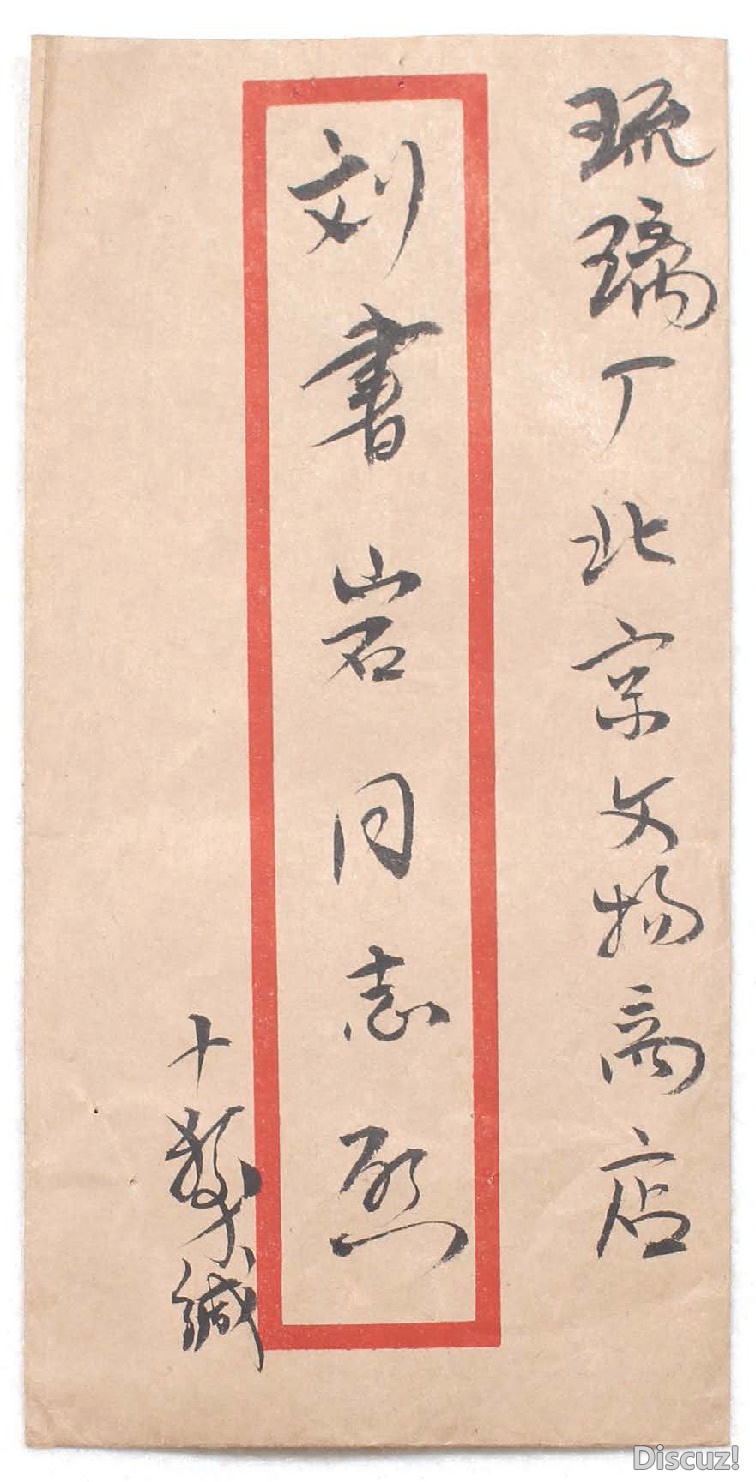 琉璃厂北京文物商店
刘書岩同志啓
十髮缄
Discuz!